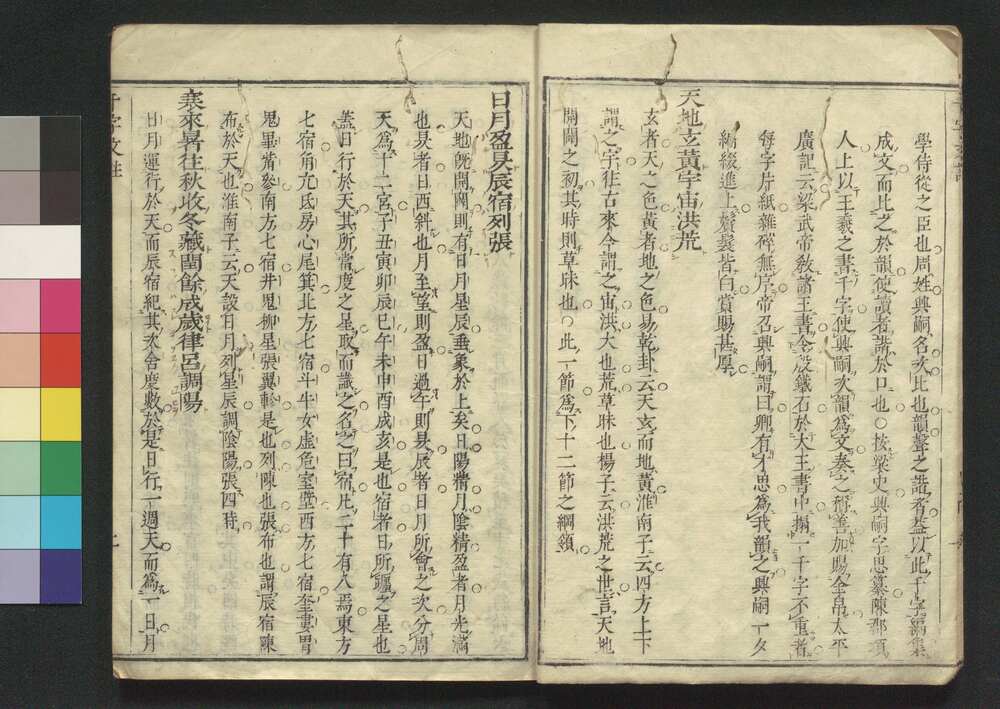 學侍從之臣也周姓興嗣名次比也韻聲之諧者蓋以此千字編集
成文而比之於韻使讀者諧於口也○按梁史興嗣字思纂陳郡項
人上以王羲之書千字使興嗣次韻爲文奏之稱善加賜金帛太平
廣記云梁武帝教諸王書令殷鐵石於大王書中搨一千字不重者
每字片紙雜碎無序帝召興嗣謂曰卿有才思爲我韻之興嗣一夕
編綴進上鬢髮皆白賞賜甚厚
天地玄黃宇宙洪荒
玄者天之色黃者地之色易乾卦云天玄而地黃淮南子云四方上下
謂之宇往古來今謂之宙洪大也荒草昧也楊子云洪荒之世言天地
開闢之初其時則草昧也○此一節爲下十二節之綱領
日月盈昃辰宿列張
天地旣開闢則有日月星辰垂象於上矣日陽精月陰精盈者月光滿
也昃者日西斜也月至望則盈日過午則昃辰者日月所會之次分周
天爲十二宮子丑寅卯辰巳午未申酉戌亥是也宿者日所躔之星也
蓋日行於天其所當度之星取而識之名之曰宿凡二十有八焉東方
七宿角亢氐房心尾箕北方七宿斗牛女虛危室壁西方七宿奎婁胃
昴畢觜參南方七宿井鬼柳星張翼軫是也列陳也張布也謂辰宿陳
布於天也淮南子云天設日月列星辰調陰陽張四時
寒來暑往秋收冬藏閏餘成歲律呂調陽
日月運行於天而辰宿紀其次舍度數於是日行一週天而爲一日月
千字文註